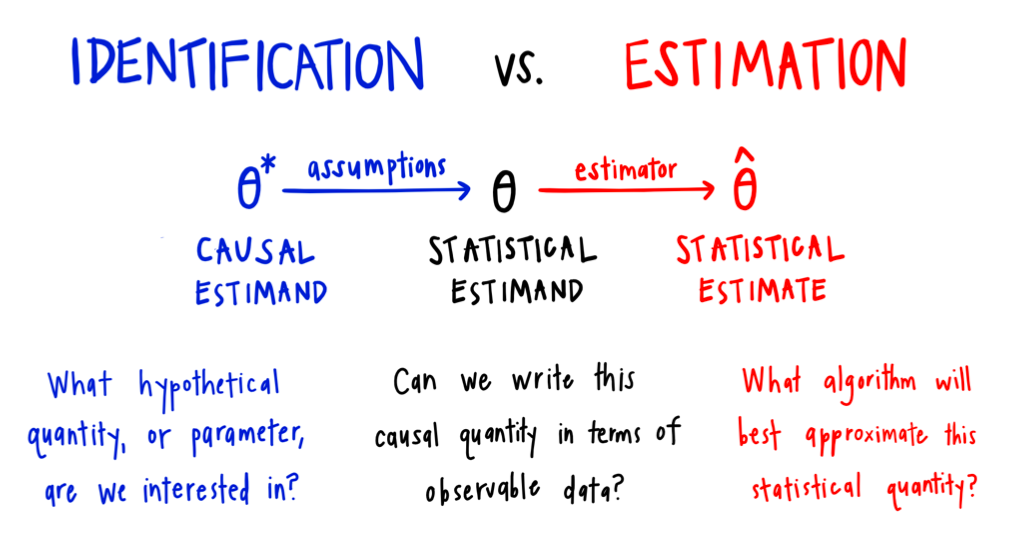 IDENTIFICATION vs. ESTIMATION
θ* assumptions θ estimator θ̂
CAUSAL STATISTICAL STATISTICAL
ESTIMAND ESTIMAND ESTIMATE
What hypothetical
quantity, or parameter,
are we interested in?
Can we write this
causal quantity in terms of
observable data?
What algorithm will
best approximate this
statistical quantity?